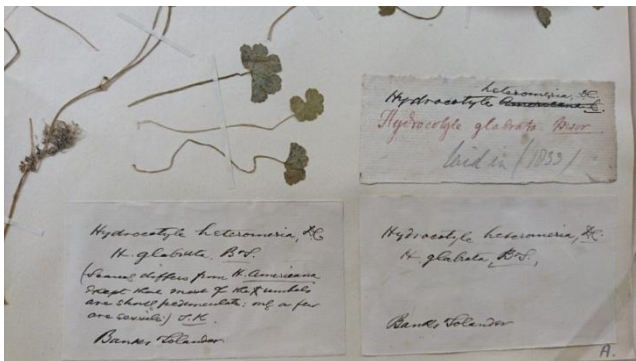 heteromeria, DC
Hydrocotyle Americana L.
Hydrocotyle glabrata
laid in (1833)
Hydrocotyle heteromeria, DC
H. glabrata, B & S.
(Scarce differs from H. Americana
except that most of the umbels
are short pedunculate: only a few
are sessile)
Banks & Solander
Hydrocotyle heteromeria, DC.
H. glabrata, B & S.,
Banks & Solander
A.